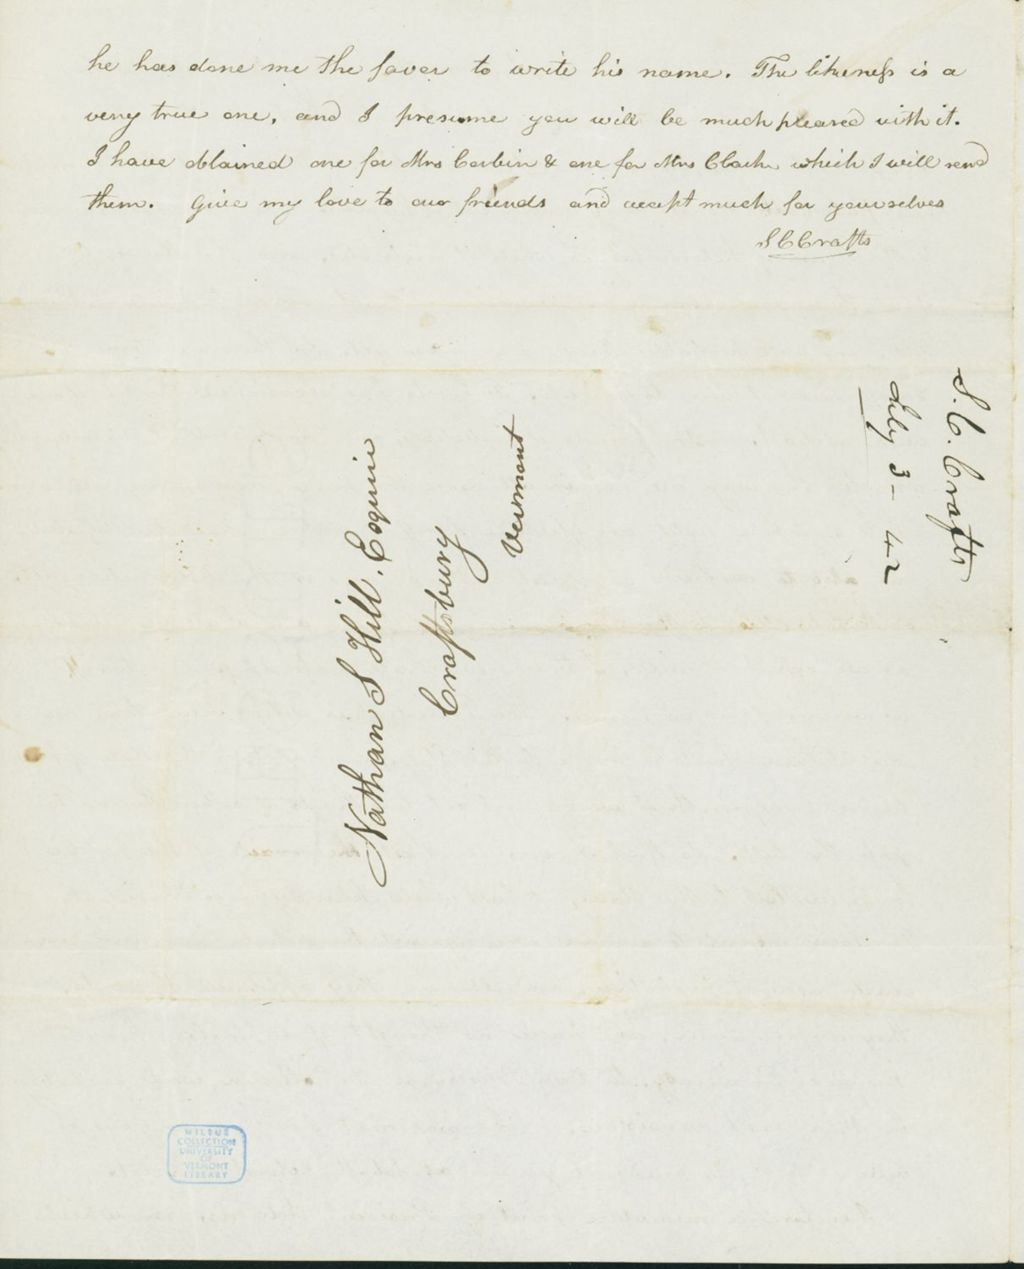 he has done me the favor to write his name. The likeness is a
very true one, and I presume you will be much pleased with it.
I have obtained one for Mrs Corbin & one for Mrs Clark which I will send
them. Give my love to our friends and accept much for yourselves
S C Crafts
S. C. Crafts
July 3 - 42
Nathan S Hill. Esquire
Craftsbury
Vermont
WILBUR
COLLECTION
UNIVERSITY
OF
VERMONT
LIBRARY